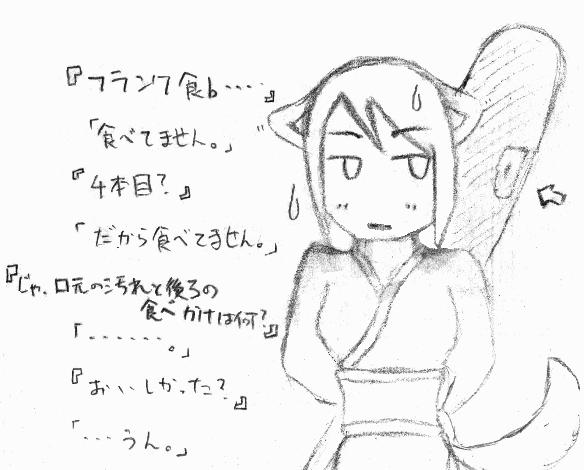 『フランフ食b‥‥』
「食べてません。」
『4本目?』
「だから食べてません。」
『じゃ、口元の汚れと後ろの
食べかけは何?』
「‥‥‥。」
『おいしかった?』
「…うん。」